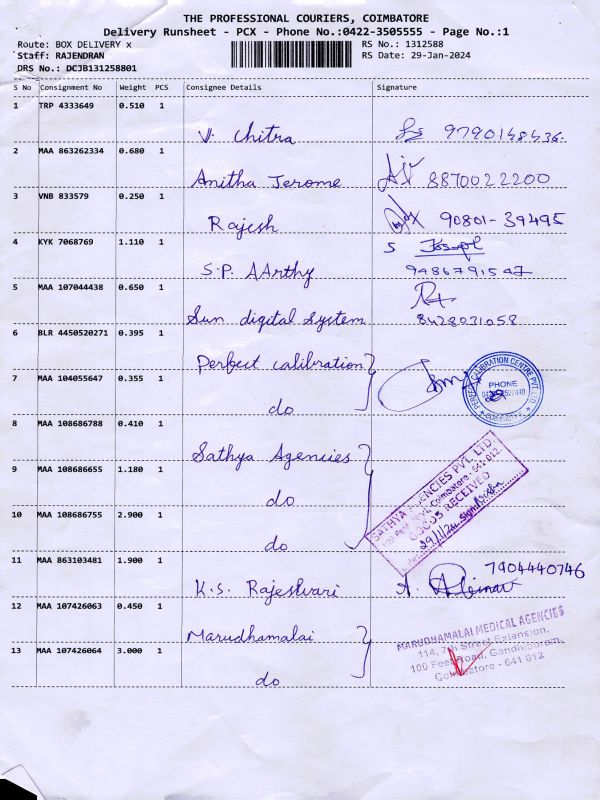 THE PROFESSIONAL COURIERS, COIMBATORE
Delivery Runsheet - PCX - Phone No.:0422-3505555 - Page No.:1
Route: BOX DELIVERY x RS No.: 1312588
Staff: RAJENDRAN RS Date: 29-Jan-2024
DRS No.: DCJB131258801
S No Consignment No Weight PCS Consignee Details Signature
1 TRP 4333649 0.510 1
V. Chitra 9790148436
2 MAA 863262334 0.680 1
Anitha Jerome 8870022200
3 VNB 833579 0.250 1
Rajesh 90801-39495
4 KYK 7068769 1.110 1 S Joseph
S.P. AArthy 9486791547
5 MAA 107044438 0.650 1
Sun digital System 8428031058
6 BLR 4450520271 0.395 1
Perfect calibration
7 MAA 104055647 0.355 1
do
PERFECT CALIBRATION CENTRE PVT. LTD.
PHONE
8 MAA 108686788 0.410 1
Sathya Agencies
9 MAA 108686655 1.180 1
do
10 MAA 108686755 2.900 1
do
SATHYA AGENCIES PVT. LTD.
Coimbatore - 641 012.
GOODS RECEIVED
29/1/24
11 MAA 863103481 1.900 1
K.S. Rajeshvari 7904440746
12 MAA 107426063 0.450 1
Marudhamalai
13 MAA 107426064 3.000 1
do
MARUDHAMALAI MEDICAL AGENCIES
114, 7th Street Extension,
100 Feet Road, Gandhipuram,
Coimbatore - 641 012